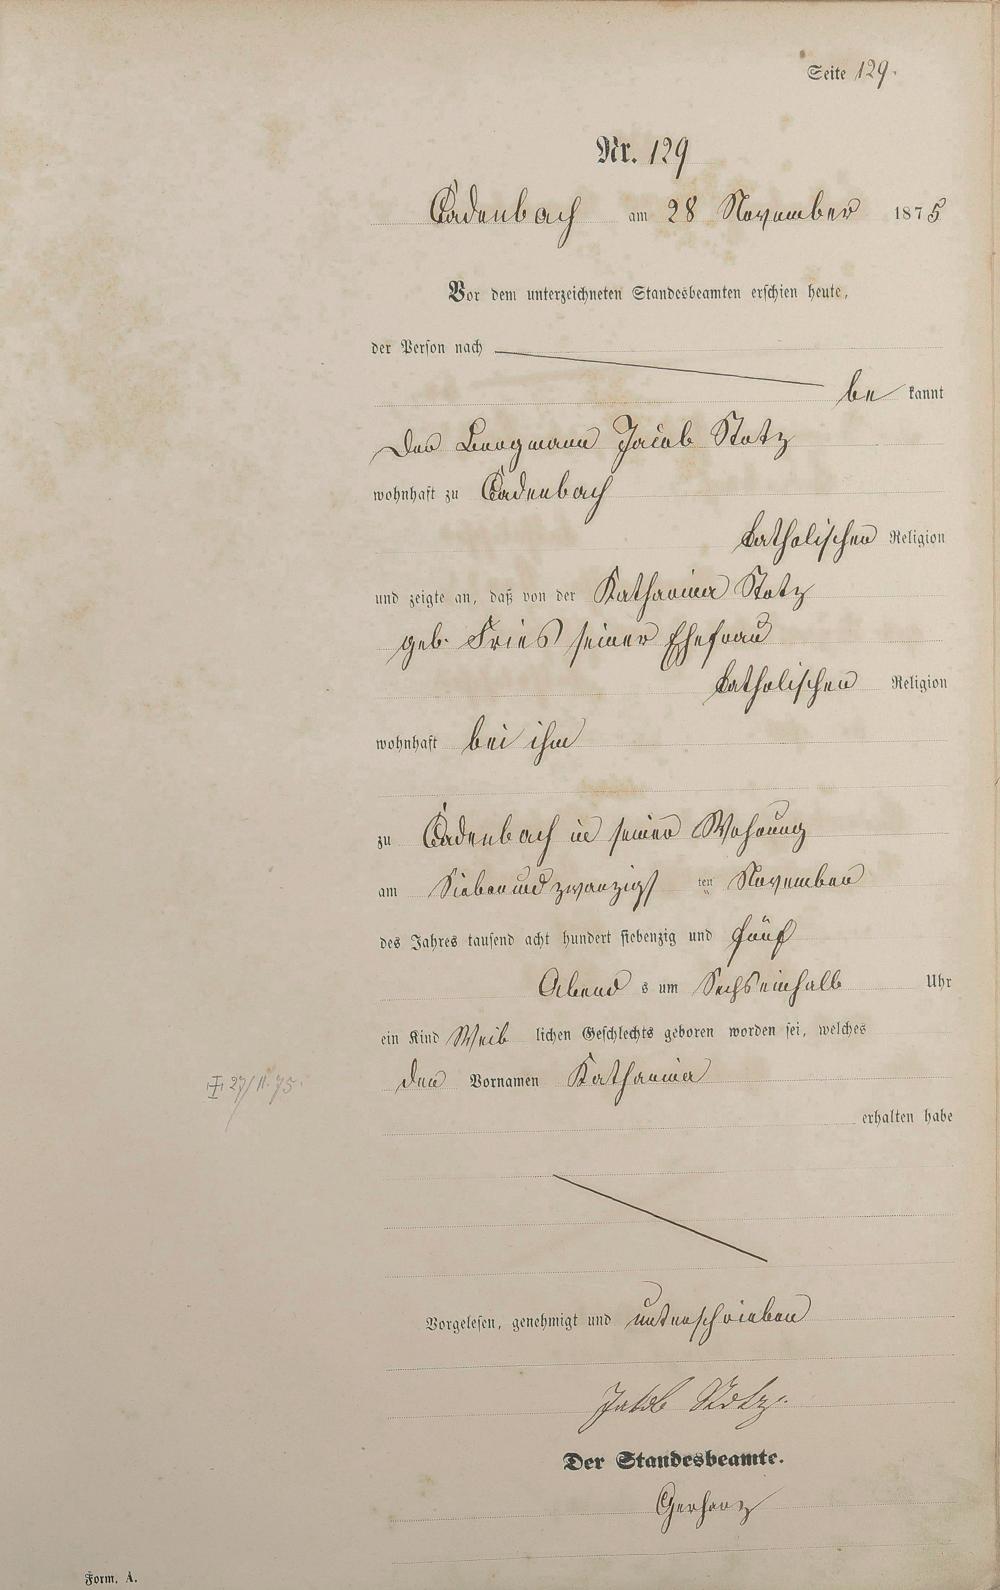 Seite 129.
Nr. 129
Cadenbach am 28 November 1875
Vor dem unterzeichneten Standesbeamten erschien heute,
der Person nach
be kannt
Der Bergmann Jacob Stotz
wohnhaft zu Cadenbach
katholischen Religion
und zeigte an, daß von der Katharina Stotz
geb. Fries seiner Ehefrau
katholischen Religion
wohnhaft bei ihm
zu Cadenbach in seiner Wohnung
am Siebenundzwanzigs ten November
des Jahres tausend acht hundert siebenzig und fünf
Abend s um Sechseinhalb Uhr
ein Kind Weib lichen Geschlechts geboren worden sei, welches
den Vornamen Katharina
27/11.75.
erhalten habe
Vorgelesen, genehmigt und unterschrieben
Jakob Stotz.
Der Standesbeamte.
Gerharz
Form. A.